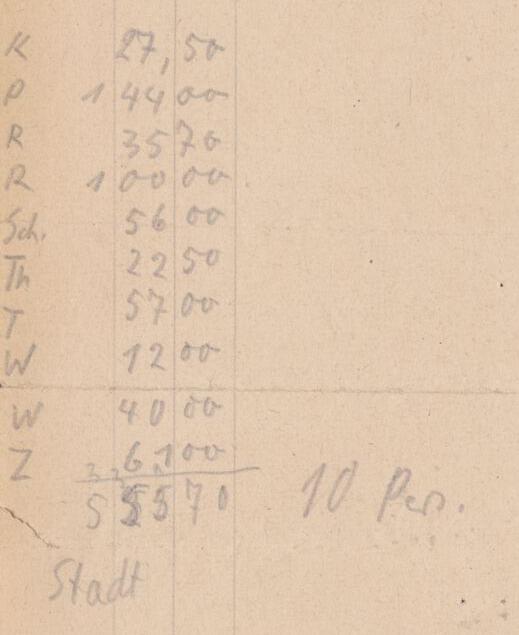 K 27,50
P 1 44 00
R 35 70
R 1 00 00
Sch. 56 00
Th 22 50
T 57 00
W 12 00
W 40 00
Z 61 00
5 55 70 10 Pers.
Stadt